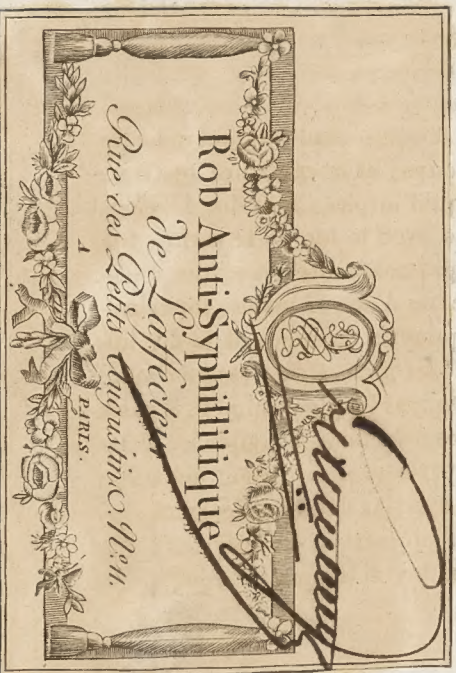 Rob Anti-Syphillitique
de Laffecteur
Rue des Petits Augustins N.º 11.
A PARIS.